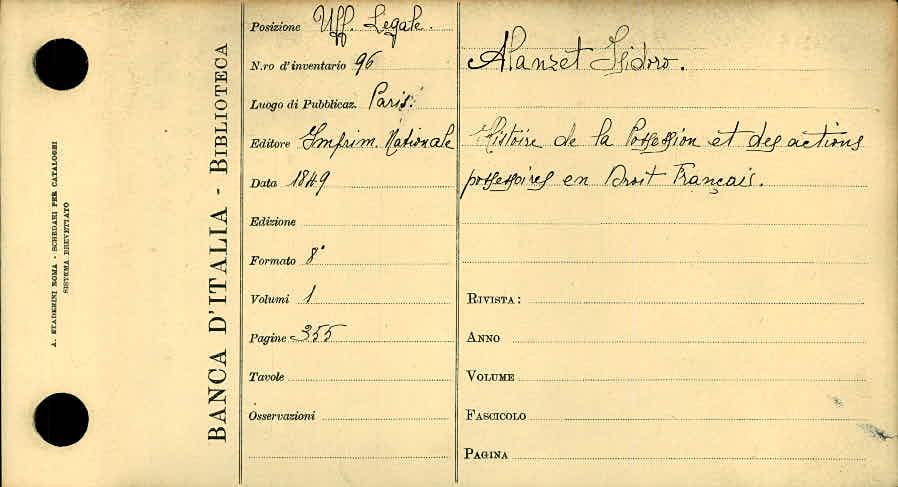 A. STADERINI ROMA - SCHEDARI PER CATALOGHI
SISTEMA BREVETTATO
BANCA D'ITALIA - BIBLIOTECA
Posizione Uff. Legale.
N.ro d'inventario 96
Luogo di Pubblicaz. Paris.
Editore Imprim. Nationale
Data 1849
Edizione
Formato 8°
Volumi 1
Pagine 355
Tavole
Osservazioni
Alanzet Isidoro.
Histoire de la Possession et des actions
possessoires en Droit Français.
RIVISTA:
ANNO
VOLUME
FASCICOLO
PAGINA